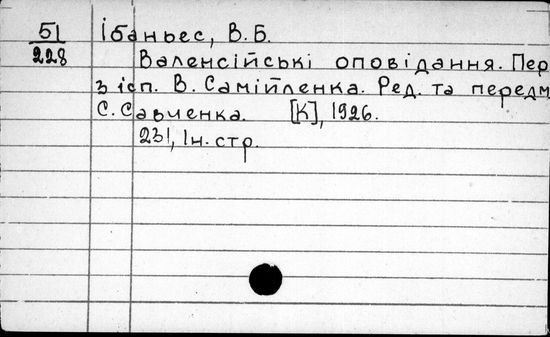 51 Ібаньес, В. Б.
228 Валенсійські оповідання. Пер
з ісп. В. Самійленка. Ред. та передм
С. Савченка. [К], 1926.
231, Ін. стр.